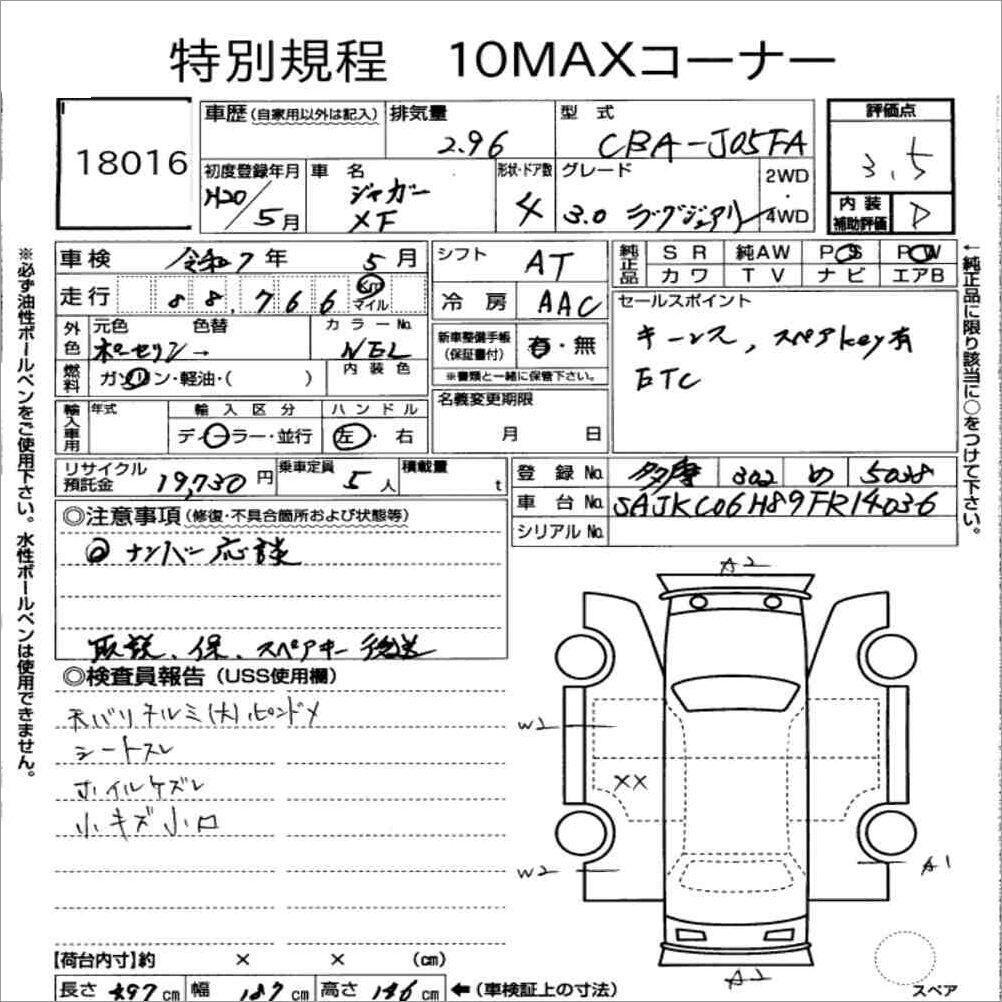 特別規程　10MAXコーナー
18016
車歴(自家用以外は記入)
排気量
2.96
型式
CBA-J05FA
評価点
3.5
初度登録年月
H20/5月
車名
ジャガー
XF
形状・ドア数
4
グレード
3.0 ラグジュアリー
2WD・4WD
内装補助評価
D
車検 令和7年 5月
走行 88,766 km マイル
シフト AT
冷房 AAC
純正品
SR 純AW PS PW
カワ TV ナビ エアB
外色
元色 色替
ポーセリン→
カラーNo.
NEL
燃料
ガソリン・軽油・( )
内装色
新車整備手帳(保証書付) 有・無
※書類と一緒に保管下さい。
セールスポイント
キーレス、スペアkey有
ETC
輸入車用
年式
輸入区分
ディーラー・並行
ハンドル
左・右
名義変更期限
月 日
リサイクル預託金 19,730円
乗車定員 5人
積載量 t
登録No. 多摩 302 め 5038
車台No. SAJKC06H89FR14036
シリアルNo.
◎注意事項(修復・不具合箇所および状態等)
ナンバー応談
取説、保、スペアキー後送
◎検査員報告(USS使用欄)
天バリ ヌルミ(大) ピンドメ
シートスレ
ホイルケズレ
小キズ小凹
A2
W2
XX
W2
A1
A2
スペア
【荷台内寸】約 × × (cm)
長さ 497cm 幅 187cm 高さ 146cm ←(車検証上の寸法)
※必ず油性ボールペンをご使用下さい。水性ボールペンは使用できません。
←純正品に限り該当に○をつけて下さい。